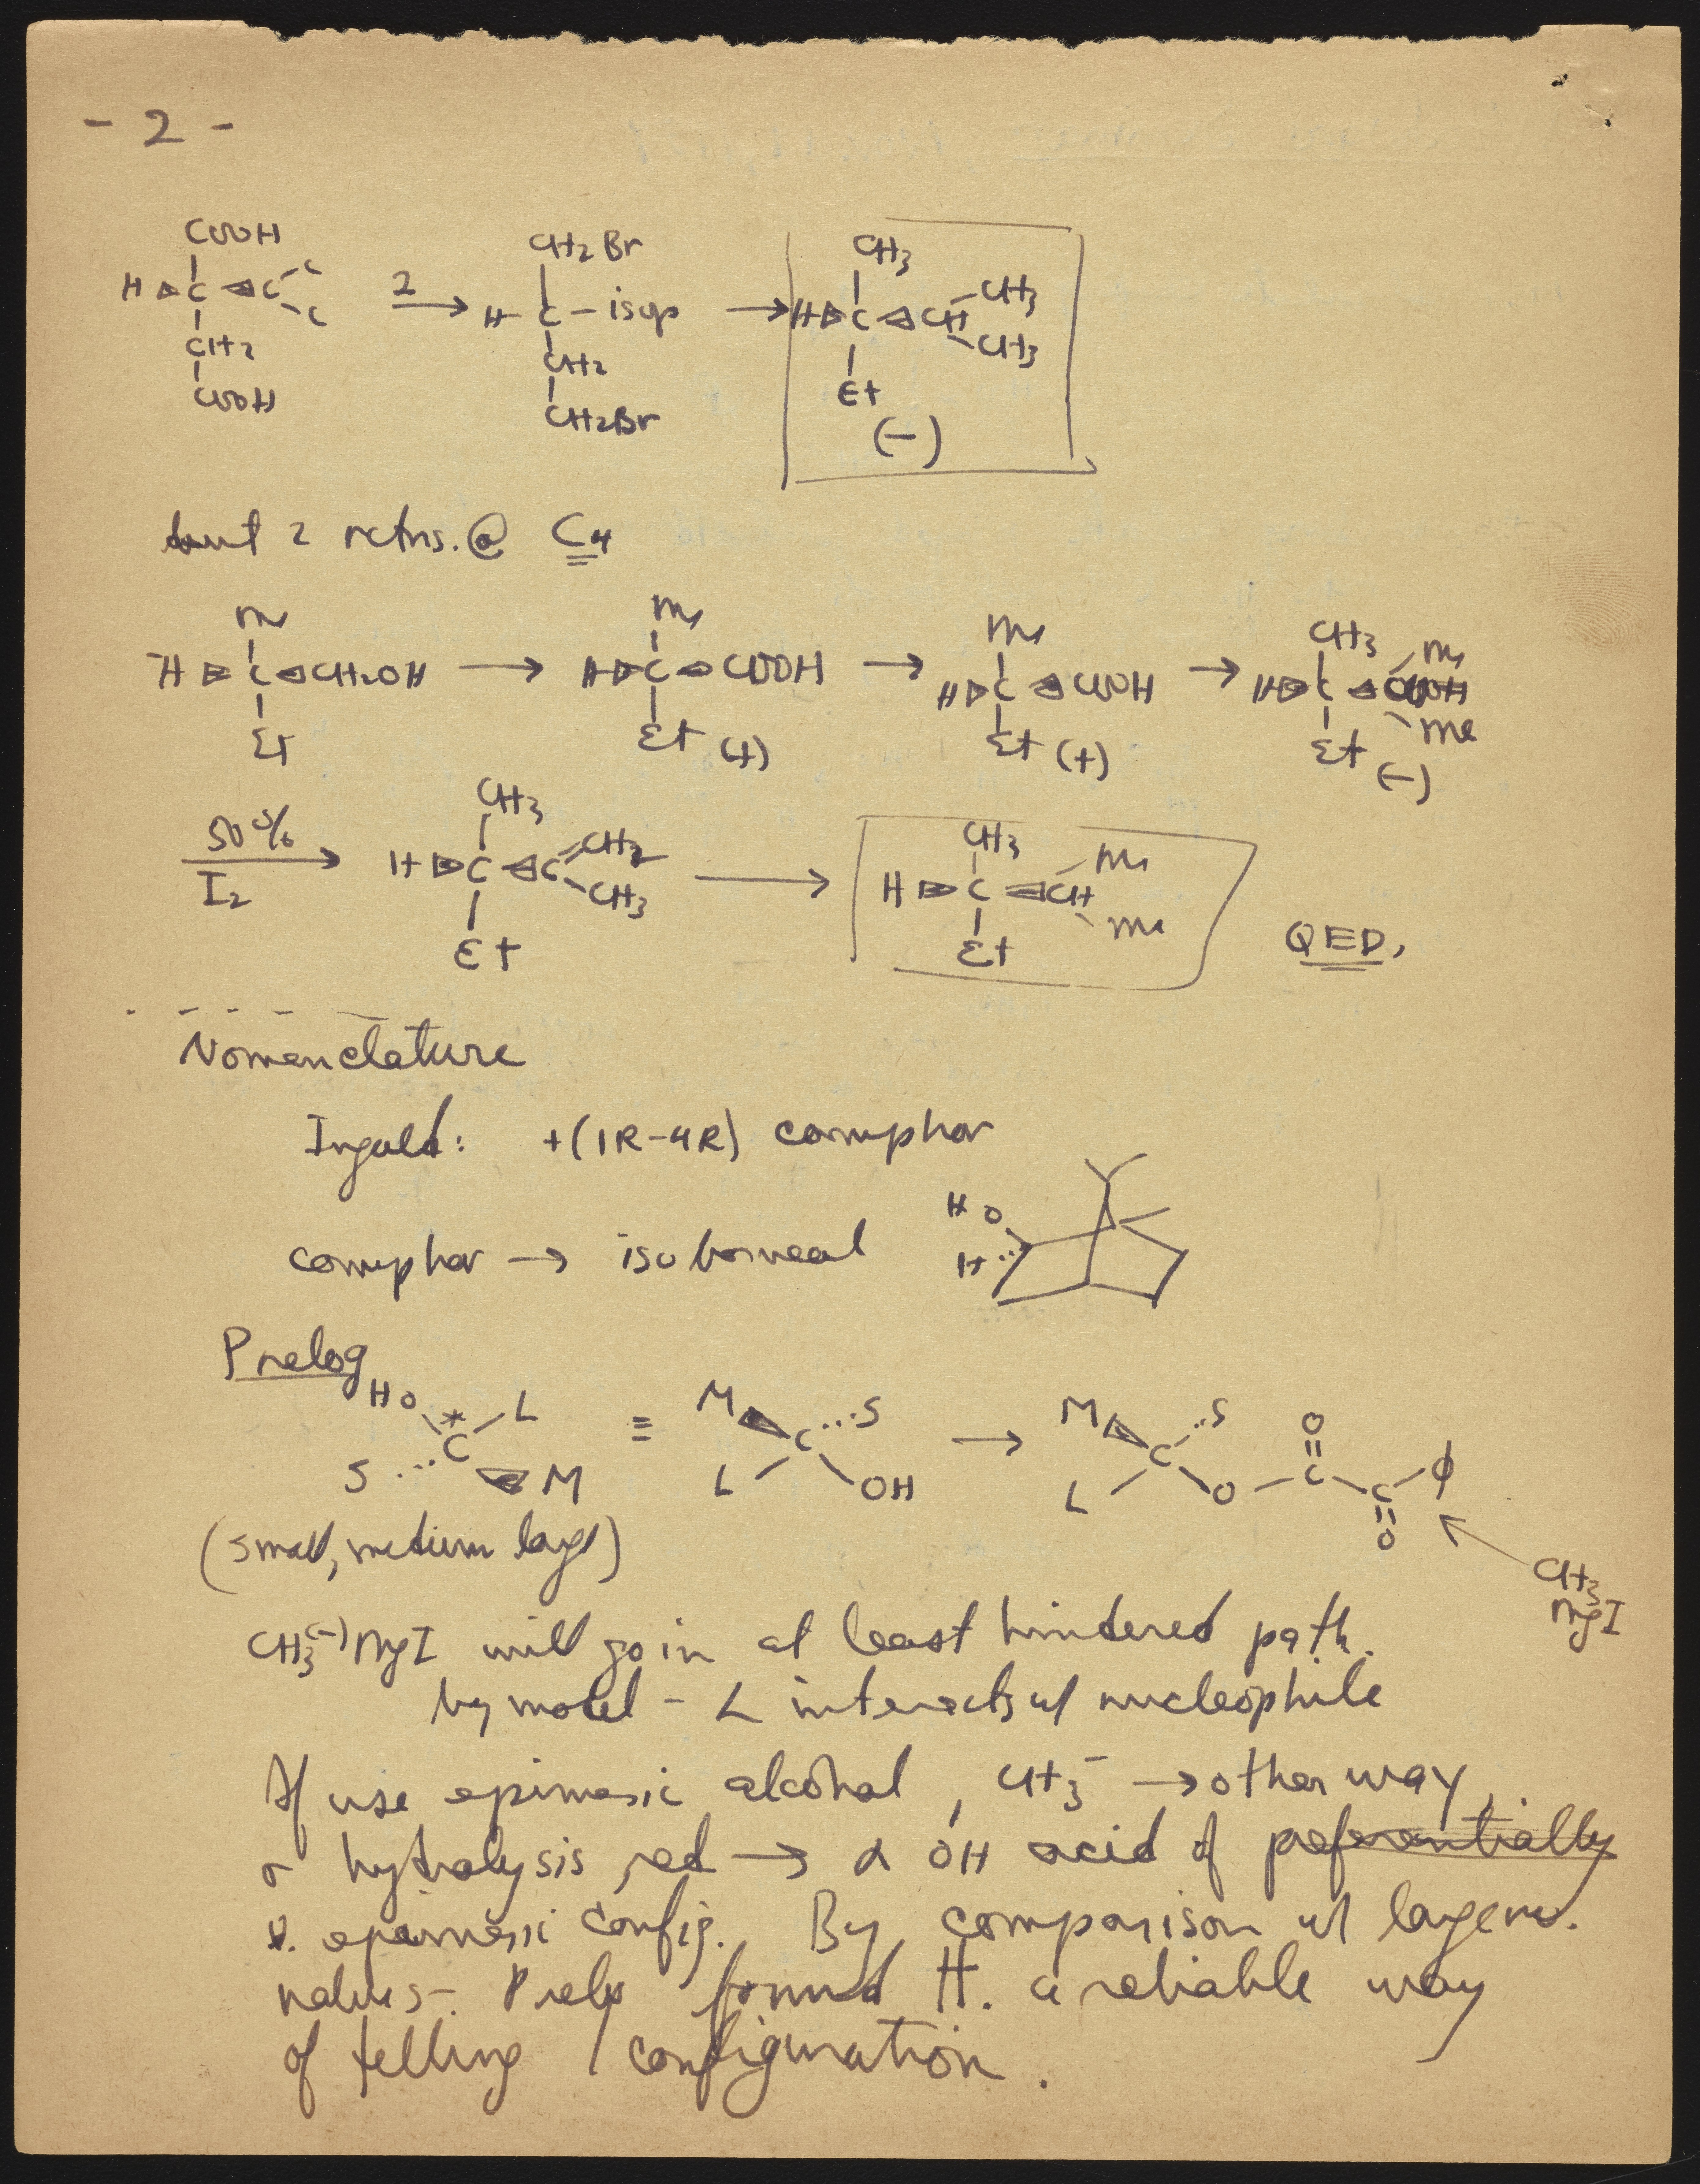 - 2 -
COOH
H C C C
C
CH2
COOH
2
CH2Br
H C - isop
CH2
CH2Br
CH3
H C CH CH3
CH3
Et
(-)
but 2 rctns. @ C4
Me
H C CH2OH
Et
Me
H C COOH
Et (+)
Me
H C COOH
Et (+)
CH3 Me
H C
Me
Et (-)
50%
I2
CH3
H C C CH2
CH3
Et
CH3
H C CH Me
Me
Et
QED,
Nomenclature
Ingold: +(1R-4R) camphor
camphor → isoborneol
HO
H
Prelog
HO * L
C
S M
≡
M S
C
L OH
→
M S O
C C C φ
L O O
(small, medium large)
CH3
MgI
CH3(-)MgI will go in at least hindered path.
by model - L interacts w/ nucleophile
If use epimeric alcohol, CH3- → other way,
hydrolysis, red → α OH acid of preferentially
epimeric config. By comparison w/
values-. Prelog found H. a reliable way
of telling configuration.